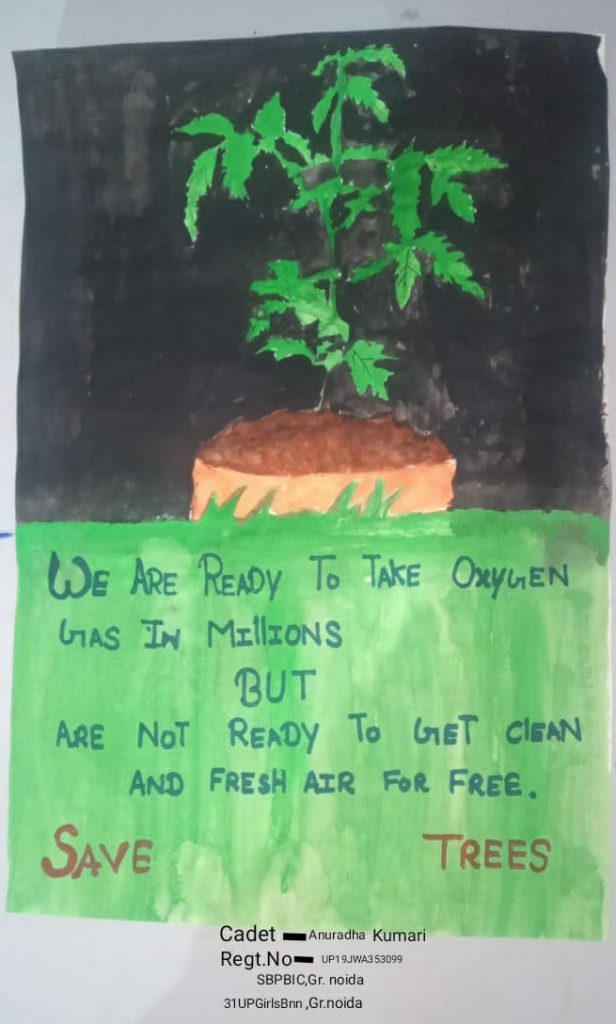 WE ARE READY TO TAKE OXYGEN
GAS IN MILLIONS
BUT
ARE NOT READY TO GET CLEAN
AND FRESH AIR FOR FREE.
SAVE TREES
Cadet - Anuradha Kumari
Regt.No- UP19JWA353099
SBPBIC,Gr. noida
31UPGirlsBnn ,Gr.noida